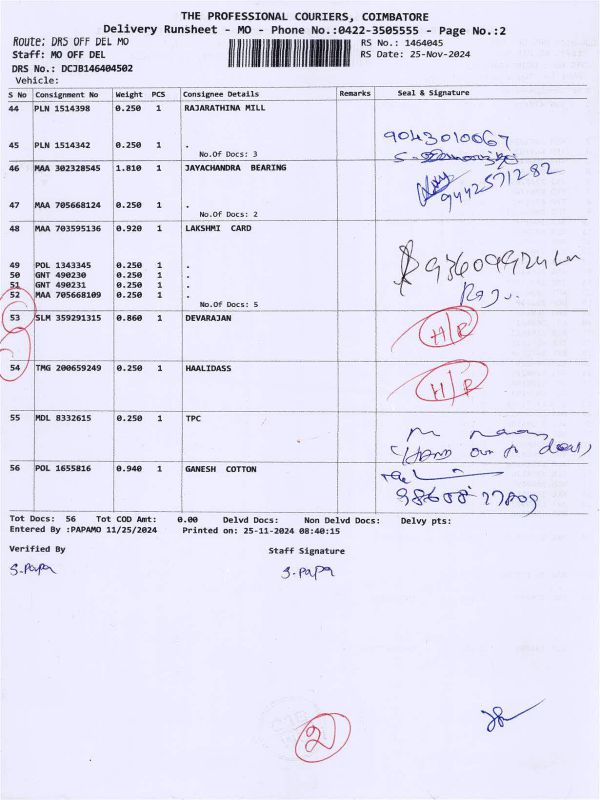 THE PROFESSIONAL COURIERS, COIMBATORE
Delivery Runsheet - MO - Phone No.:0422-3505555 - Page No.:2
Route: DRS OFF DEL MO
RS No.: 1464045
Staff: MO OFF DEL
RS Date: 25-Nov-2024
DRS No.: DCJB146404502
Vehicle:
S No Consignment No Weight PCS Consignee Details Remarks Seal & Signature
44 PLN 1514398 0.250 1 RAJARATHINA MILL
45 PLN 1514342 0.250 1 .
9043010067
No.Of Docs: 3
46 MAA 302328545 1.810 1 JAYACHANDRA BEARING
9442571282
47 MAA 705668124 0.250 1 .
No.Of Docs: 2
48 MAA 703595136 0.920 1 LAKSHMI CARD
49 POL 1343345 0.250 1 .
50 GNT 490230 0.250 1 .
51 GNT 490231 0.250 1 .
52 MAA 705668109 0.250 1 .
Raju.
No.Of Docs: 5
53 SLM 359291315 0.860 1 DEVARAJAN
H/R
54 TMG 200659249 0.250 1 HAALIDASS
H/R
55 MDL 8332615 0.250 1 TPC
56 POL 1655816 0.940 1 GANESH COTTON
Tot Docs: 56 Tot COD Amt: 0.00 Delvd Docs: Non Delvd Docs: Delvy pts:
Entered By :PAPAMO 11/25/2024 Printed on: 25-11-2024 08:40:15
Verified By
Staff Signature
S.PAPA
S.PAPA
2